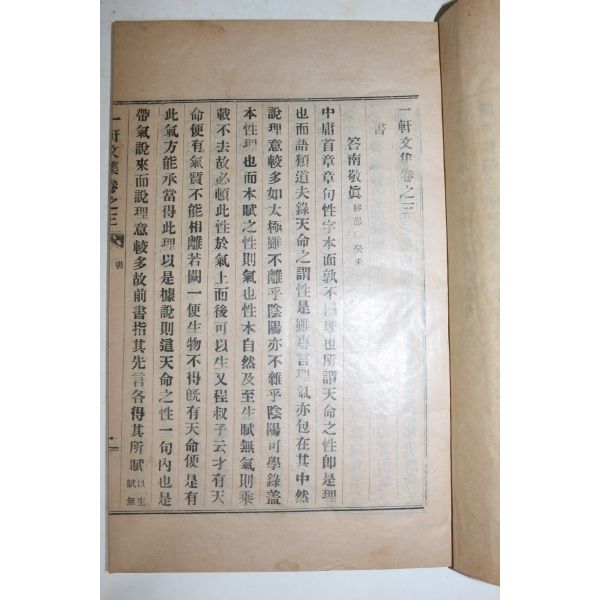 一軒文集卷之三
書
答南敬眞 癸未
中庸首章章句性字本面孰不曰理也所謂天命之性卽是理
也而語類道夫錄天命之謂性是雖專言理氣亦包在其中然
說理意較多如太極雖不離乎陰陽亦不雜乎陰陽可學錄盖
本性理也而本賦之性則氣也性本自然及至生賦無氣則乘
載不去故必頓此性於氣上而後可以生又程叔子云才有天
命便有氣質不能相離若闕一便生物不得旣有天命便是有
此氣方能承當得此理以是據說則這天命之性一句內也是
帶氣說來而說理意較多故前書指其先言各得其所賦 以生賦無
一軒文集卷之三 書 一